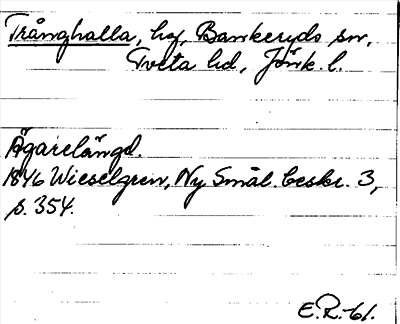 Trånghalla, hg, Bankeryds sn,
Tveta hd, Jönk. l.
Ägarelängd.
1846 Wieselgren, Ny Smål. beskr. 3,
s. 354.
E.R.-61.